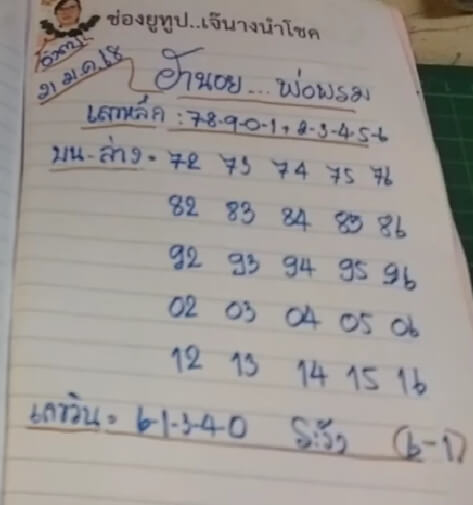 ช่องยูทูป..เจ๊นางนำโชค
21 ม.ค.68
ฮานอย... พ่อพรม
เลขหลัก : 7-8-9-0-1 + 2-3-4-5-6
บน-ล่าง = 72 73 74 75 76
82 83 84 85 86
92 93 94 95 96
02 03 04 05 06
12 13 14 15 16
เลขวิน = 6-1-3-4-0 ระวัง (6-1)